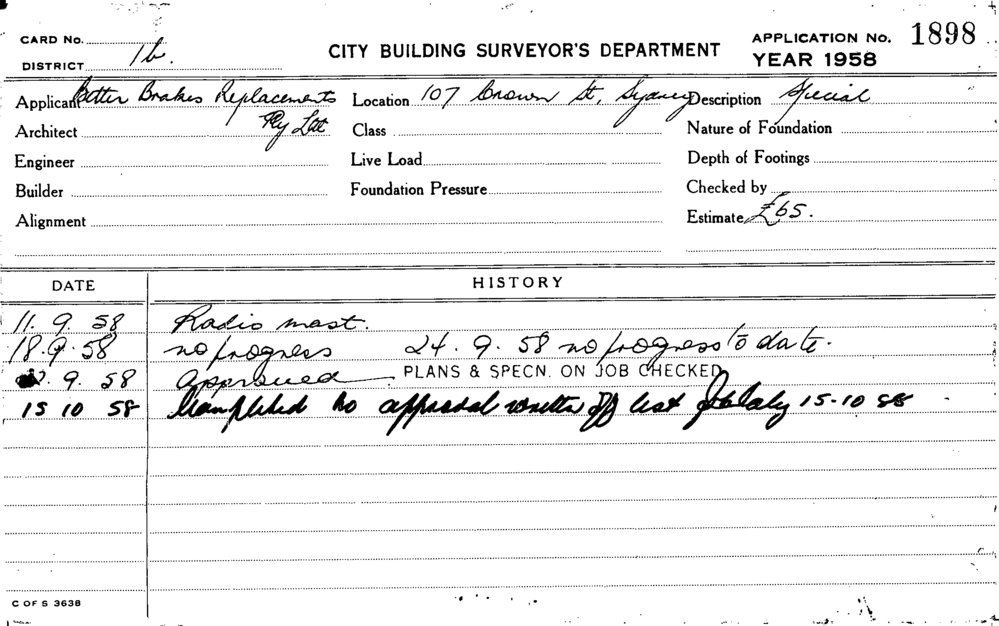 CARD No.
DISTRICT 1b.
CITY BUILDING SURVEYOR'S DEPARTMENT
APPLICATION No. 1898
YEAR 1958
Applicant Better Brakes Replacements Location 107 Crown St, Sydney Description Special
Pty Ltd
Architect Class Nature of Foundation
Engineer Live Load Depth of Footings
Builder Foundation Pressure Checked by
Alignment Estimate £65.
DATE HISTORY
11. 9. 58 Radio mast.
18. 9. 58 no progress 24. 9. 58 no progress to date.
. 9. 58 Approved PLANS & SPECN. ON JOB CHECKED
15 10 58 Completed to approval written off list 15-10 58
C OF S 3638